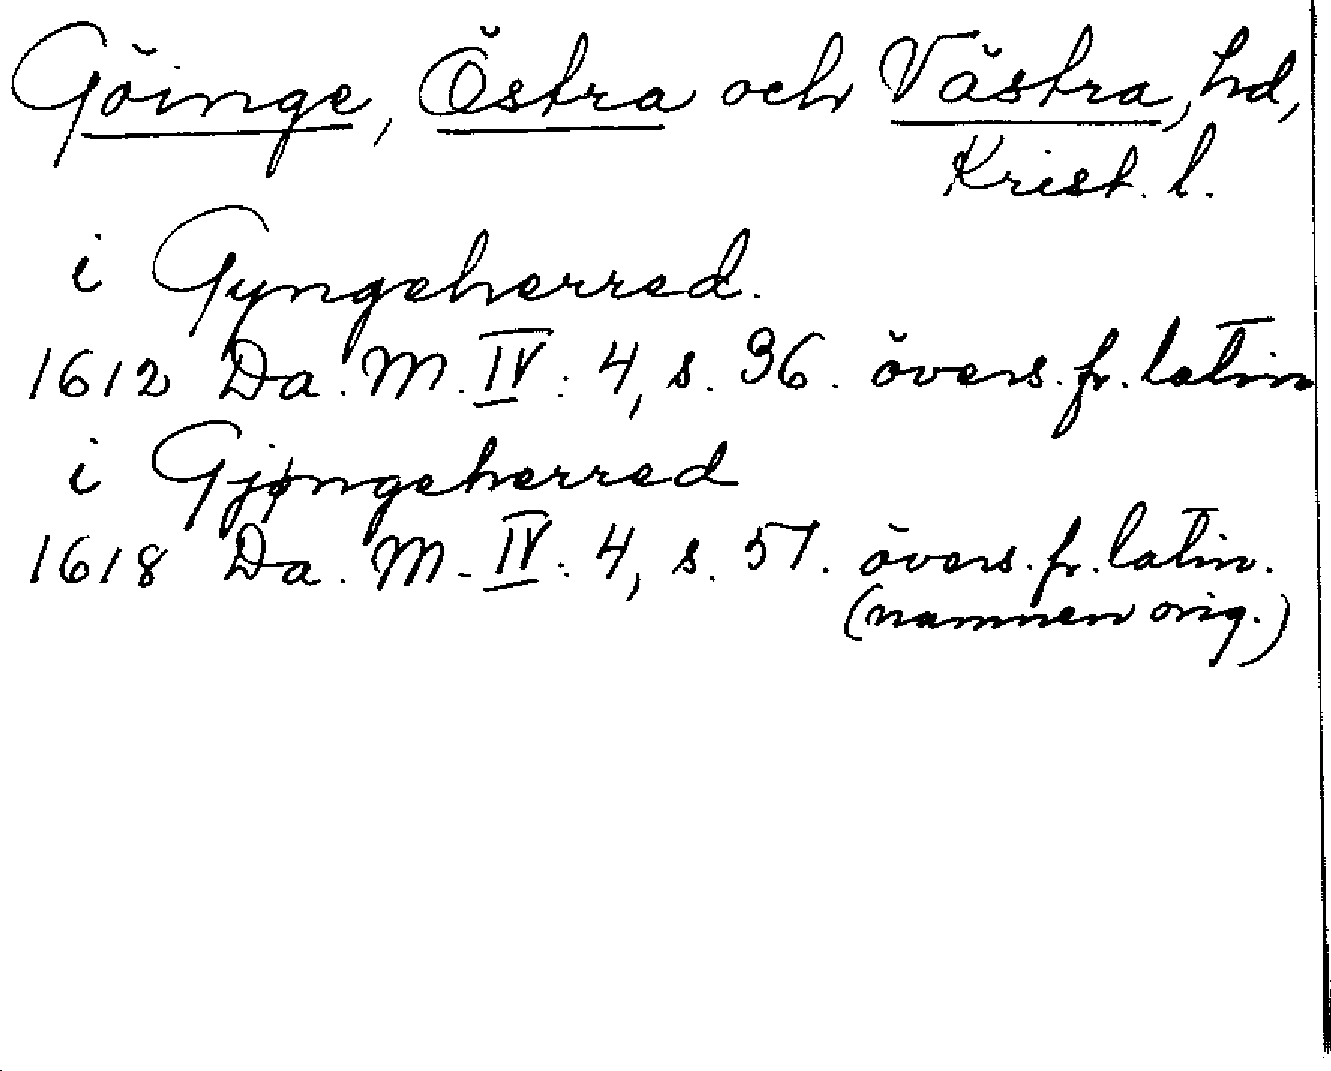 Göinge, Östra och Västra, hd,
Krist. l.
i Gyngeherred.
1612 Da. M. IV. 4, s. 36. övers. fr. latin
i Gjøngeherred
1618 Da. M. IV. 4, s. 57. övers. fr. latin.
(namnen orig.)